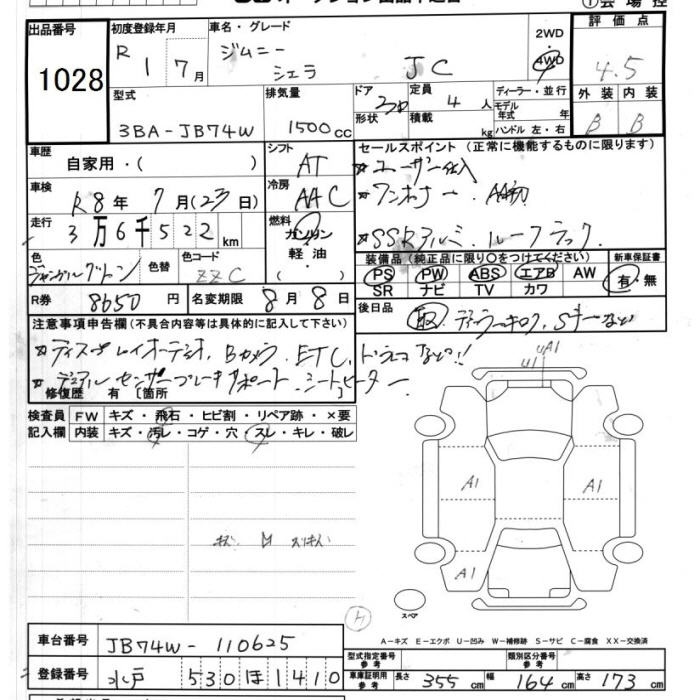 出品番号
1028
初度登録年月
R 1 7月
車名・グレード
ジムニー
シエラ JC
2WD
4WD
評価点
4.5
外装 内装
B B
型式
3BA-JB74W
排気量
1500cc
ドア
形状
定員
4人
積載
kg
ディーラー・並行
モデル
年式 年
ハンドル 左・右
車歴
自家用・( )
シフト
AT
セールスポイント (正常に機能するものに限ります)
☆ユーザー仕入
☆ワンオーナー、AA初
☆SSRアルミ、ルーフラック、
車検
R8年7月(23日)
冷房
AAC
走行
3万6千522km
燃料
ガソリン
軽油
( )
色
ジャングルグリーン
色替
色コード
ZZC
装備品(純正品に限り○をつけてください)
PS PW ABS エアB AW
SR ナビ TV カワ
新車保証書
有・無
R券 8650円
名変期限 8月8日
後日品
取
注意事項申告欄(不具合内容等は具体的に記入して下さい)
☆ディスプレイオーディオ、Bカメラ、ETC、ドラレコなど!!
☆デュアルセンサーブレーキサポート、シートヒーター
修復歴 有 [箇所
検査員
記入欄
FW キズ・飛石・ヒビ割・リペア跡・×要
内装 キズ・汚レ・コゲ・穴・スレ・キレ・破レ
U1 A1
A1
A1
A1
スペア
A-キズ E-エクボ U-凹み W-補修跡 S-サビ C-腐食 XX-交換済
車台番号 JB74W-110625
登録番号 水戸 530ほ1410
型式指定番号
参考
類別区分番号
参考
車庫証明用
参考
長さ 355cm 幅 164cm 高さ 173cm